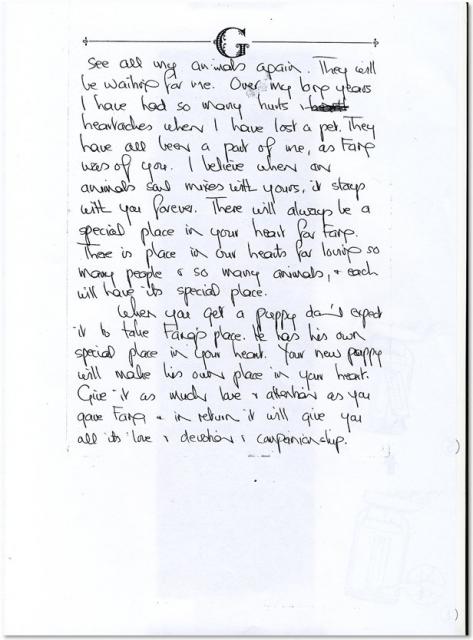 G
see all my animals again. They will
be waiting for me. Over my long years
I have had so many hurts &
heartaches when I have lost a pet. They
have all been a part of me, as Fang
was of you. I believe when an
animals soul mixes with yours, it stays
with you forever. There will always be a
special place in your heart for Fang.
There is place in our hearts for loving so
many people & so many animals, & each
will have its special place.
When you get a puppy don't expect
it to take Fang's place. He has his own
special place in your heart. Your new puppy
will make his own place in your heart.
Give it as much love & attention as you
gave Fang & in return it will give you
all its love & devotion & companionship.